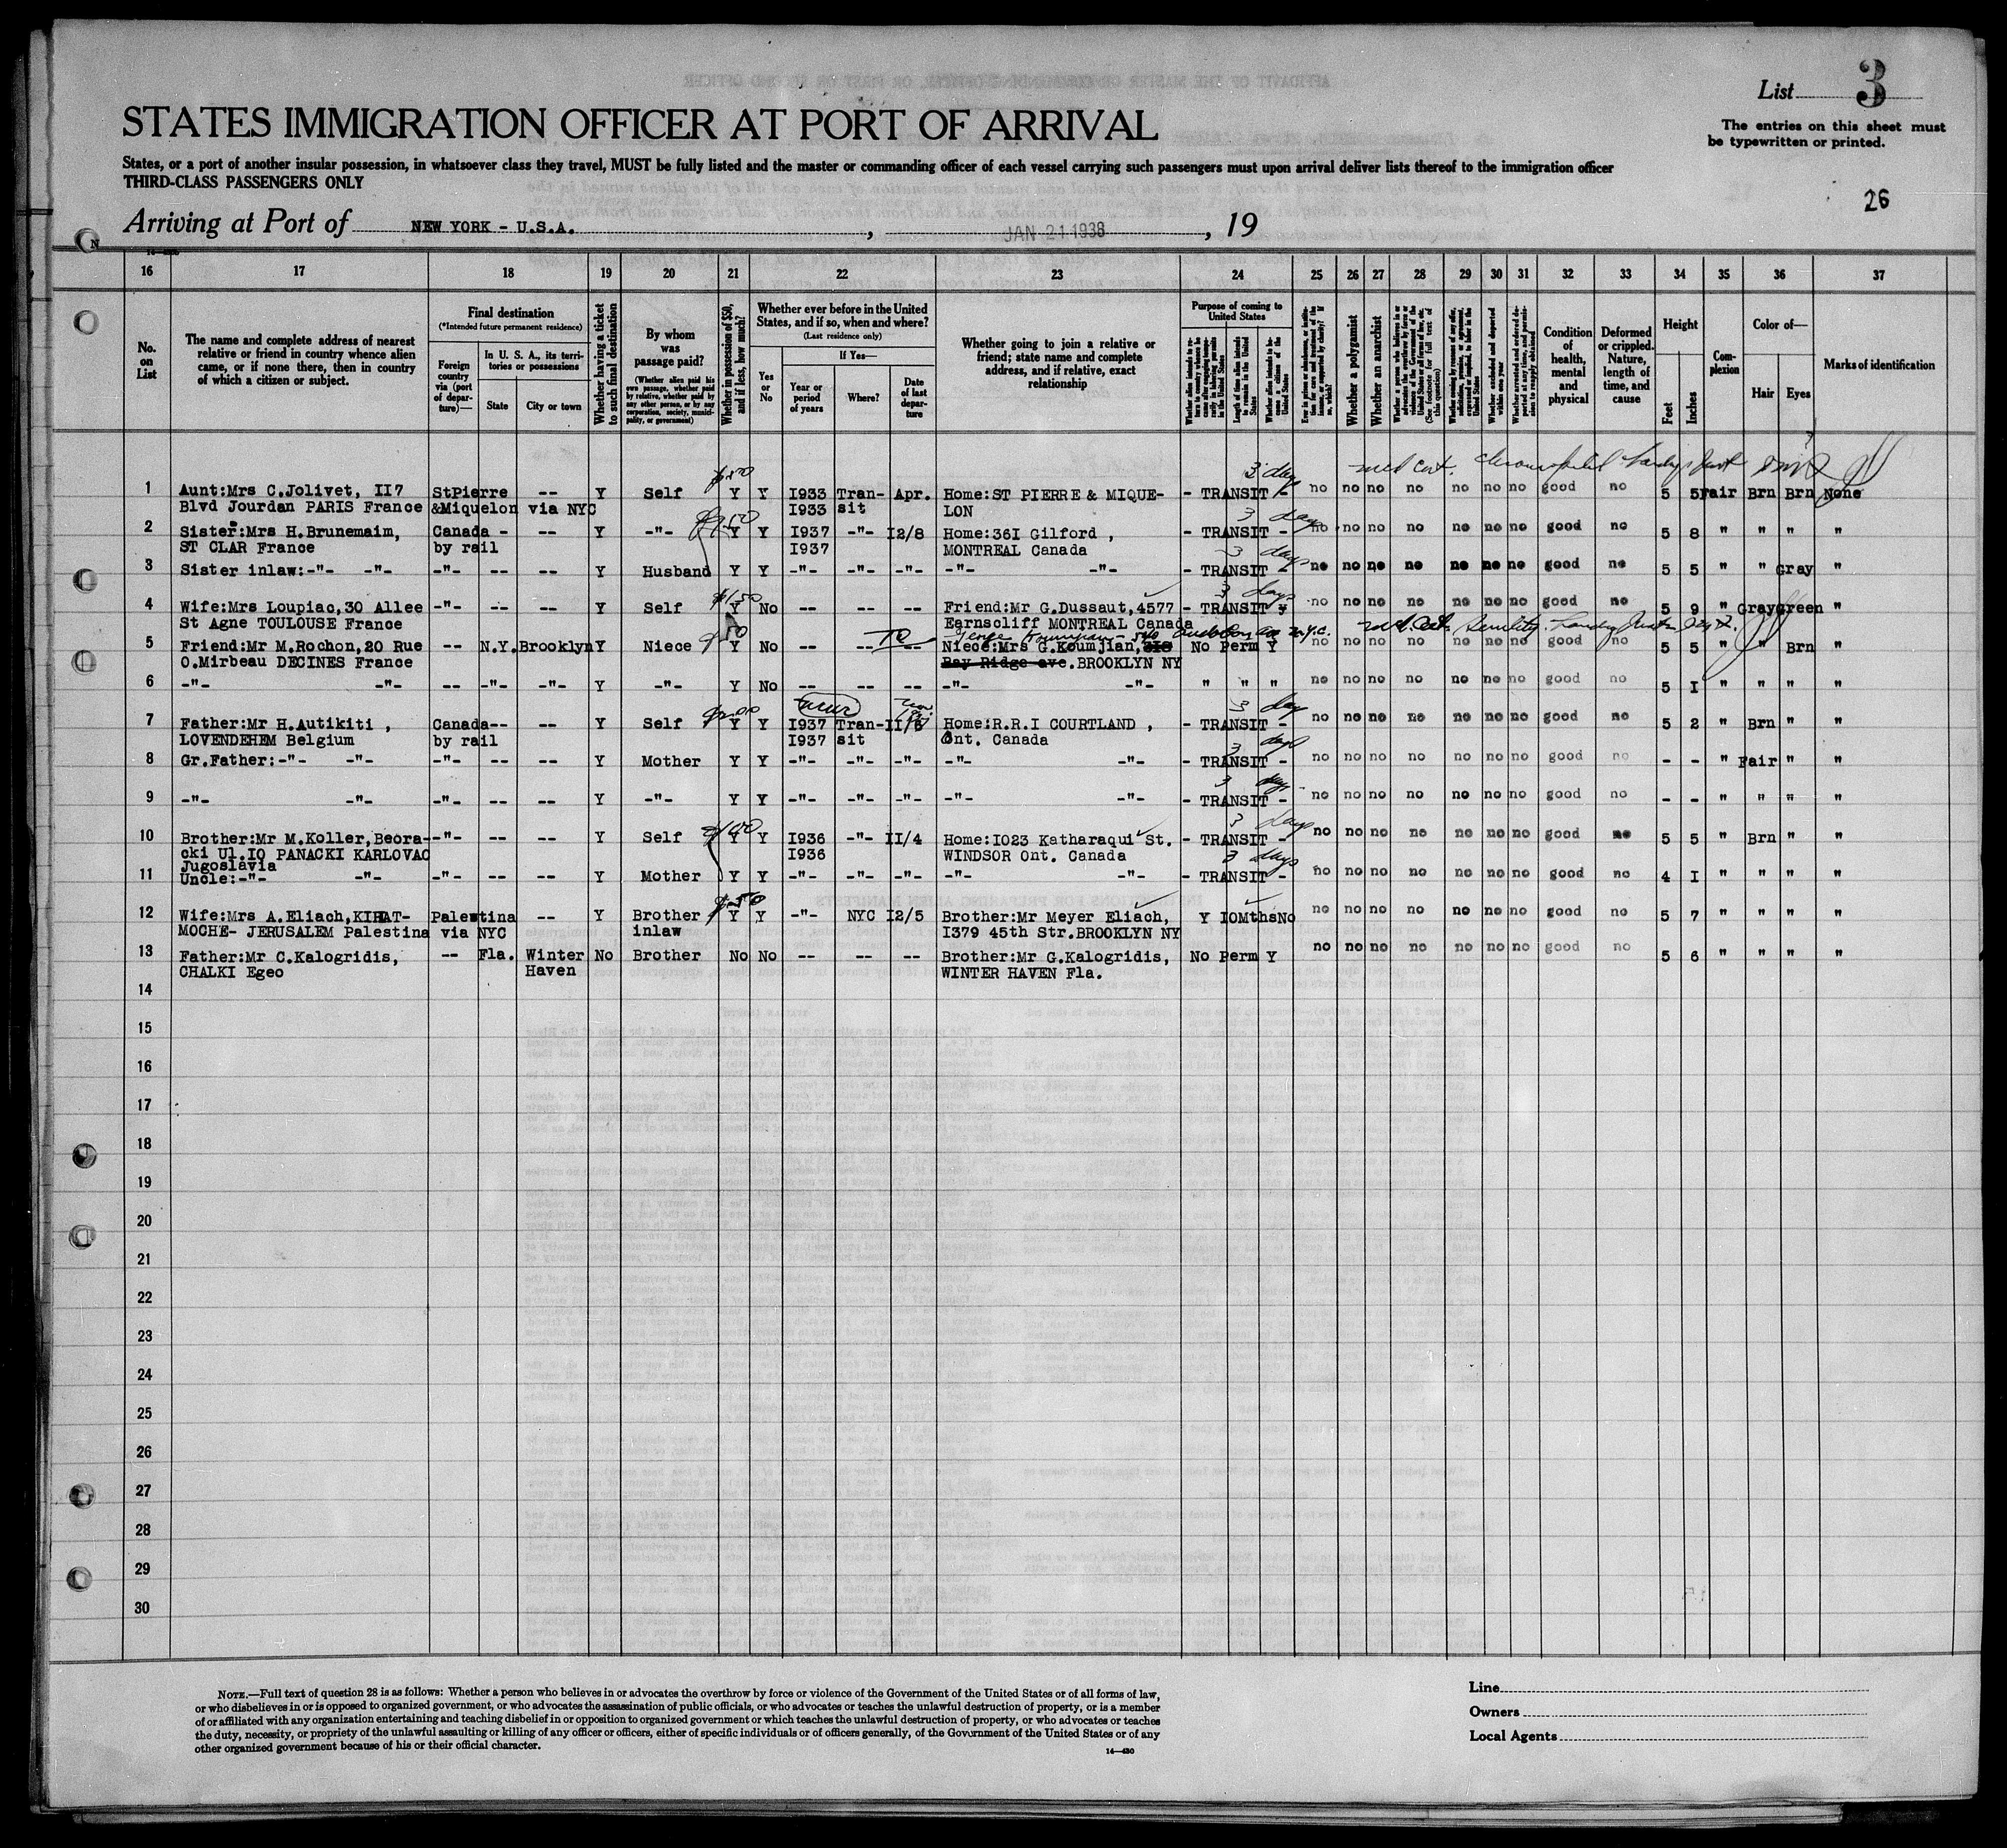 List 3
STATES IMMIGRATION OFFICER AT PORT OF ARRIVAL
The entries on this sheet must
be typewritten or printed.
States, or a port of another insular possession, in whatsoever class they travel, MUST be fully listed and the master or commanding officer of each vessel carrying such passengers must upon arrival deliver lists thereof to the immigration officer
THIRD-CLASS PASSENGERS ONLY
26
Arriving at Port of NEW YORK - U.S.A. , JAN 21 1938 , 19
16 17 18 19 20 21 22 23 24 25 26 27 28 29 30 31 32 33 34 35 36 37
No. on List
The name and complete address of nearest relative or friend in country whence alien came, or if none there, then in country of which a citizen or subject.
Final destination
(*Intended future permanent residence)
Foreign country via (port of departure)—
In U. S. A., its territories or possessions
State
City or town
Whether having a ticket to such final destination
By whom was passage paid?
(Whether alien paid his own passage, whether paid by relative, whether paid by any other person, or by any corporation, society, municipality, or government)
Whether in possession of $50, and if less, how much?
Whether ever before in the United States, and if so, when and where?
(Last residence only)
Yes or No
If Yes—
Year or period of years
Where?
Date of last departure
Whether going to join a relative or friend; state name and complete address, and if relative, exact relationship
Purpose of coming to United States
Length of time alien intends to remain in the United States
Whether alien intends to become a citizen of the United States
Whether a polygamist
Whether an anarchist
(See footnote for full text of this question)
Whether excluded and deported within one year
Condition of health, mental and physical
Deformed or crippled. Nature, length of time, and cause
Height
Feet
Inches
Complexion
Color of—
Hair
Eyes
Marks of identification
3 days med cert.
$50
1 Aunt:Mrs C.Jolivet, II7 StPierre -- Y Self Y Y I933 Tran- Apr. Home:ST PIERRE & MIQUE- - TRANSIT - no no no no no no no good no 5 5 Fair Brn Brn None
Blvd Jourdan PARIS France &Miquelon via NYC I933 sit LON
$50 3 days
2 Sister:Mrs H.Brunemaim, Canada - -- Y -"- Y Y I937 -"- I2/8 Home:36I Gilford , - TRANSIT - no no no no no no no good no 5 8 " " " "
ST CLAR France by rail I937 MONTREAL Canada
3 days
3 Sister inlaw:-"- -"- -"- -- -- Y Husband Y Y -"- -"- -"- -"- -"- - TRANSIT - no no no no no no no good no 5 5 " " Gray "
$150 3 days
4 Wife:Mrs Loupiac,30 Allee -"- -- -- Y Self Y No -- -- -- Friend:Mr G.Dussaut,4577 - TRANSIT - no no no no no no no good no 5 9 " Gray green "
St Agne TOULOUSE France Earnscliff MONTREAL Canada
$50 540 Audubon Av N.Y.C. med cert. Senility
5 Friend:Mr M.Rochon,20 Rue -- N.Y. Brooklyn Y Niece Y No -- -- -- Niece:Mrs G.Koumjian, No Perm Y no no no no no no no good no 5 5 " " Brn "
O.Mirbeau DECINES France Bay Ridge ave.BROOKLYN NY
6 -"- -"- -- -"- -"- Y -"- Y No -- -- -- -"- -"- " " " no no no no no no no good no 5 I " " " "
3 days
7 Father:Mr H.Autikiti , Canada-- -- Y Self Y Y I937 Tran- II/6 Home:R.R.I COURTLAND , - TRANSIT - no no no no no no no good no 5 2 " Brn " "
LOVENDEHEM Belgium by rail I937 sit Ont. Canada
3 days
8 Gr.Father:-"- -"- -"- -- -- Y Mother Y Y -"- -"- -"- -"- -"- - TRANSIT - no no no no no no no good no - - " Fair " "
3 days
9 -"- -"- -"- -- -- Y -"- Y Y -"- -"- -"- -"- -"- - TRANSIT - no no no no no no no good no - - " " " "
$100 3 days
10 Brother:Mr M.Koller,Beora- -"- -- -- Y Self Y Y I936 -"- II/4 Home:I023 Katharaqui St. - TRANSIT - no no no no no no no good no 5 5 " Brn " "
cki Ul.IO PANACKI KARLOVAC I936 WINDSOR Ont. Canada
Jugoslavia
3 days
11 Uncle:-"- -"- -"- -- -- Y Mother Y Y -"- -"- -"- -"- -"- - TRANSIT - no no no no no no no good no 4 I " " " "
$50
12 Wife:Mrs A.Eliach,KIHAT- Palestina -- Y Brother Y Y -"- NYC I2/5 Brother:Mr Meyer Eliach, Y IOMths No no no no no no no no good no 5 7 " " " "
MOCHE- JERUSALEM Palestina via NYC inlaw I379 45th Str.BROOKLYN NY
13 Father:Mr C.Kalogridis, -- Fla. Winter No Brother No No -- -- -- Brother:Mr G.Kalogridis, No Perm Y no no no no no no no good no 5 6 " " " "
CHALKI Egeo Haven WINTER HAVEN Fla.
14
15
16
17
18
19
20
21
22
23
24
25
26
27
28
29
30
NOTE.—Full text of question 28 is as follows: Whether a person who believes in or advocates the overthrow by force or violence of the Government of the United States or of all forms of law,
or who disbelieves in or is opposed to organized government, or who advocates the assassination of public officials, or who advocates or teaches the unlawful destruction of property, or is a member
of or affiliated with any organization entertaining and teaching disbelief in or opposition to organized government or which teaches the unlawful destruction of property, or who advocates or teaches
the duty, necessity, or propriety of the unlawful assaulting or killing of any officer or officers, either of specific individuals or of officers generally, of the Government of the United States or of any
other organized government because of his or their official character.
14—430
Line
Owners
Local Agents